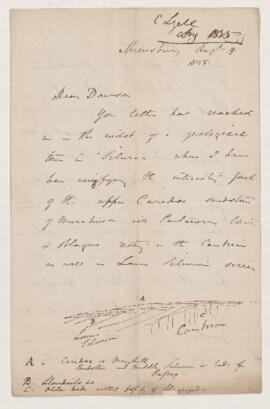 C Lyell
Aug 1855
Shrewsbury Augt 9
1855
Dear Dawson
Your letter has reached
me in the midst of a geological
tour in "Siluria" where I have
been verifying the interesting fact
of the upper Caradoc sandstone
of Murchison with Pentamerus
& resting on the Cambrian
as well as Lower Silurian series
A
B
C
Lower
Silurian
Cambrian
A - Caradoc or Mayhill
Sandstone or Middle Silurian or beds of
passage
B - Llandeilo
C - Older beds